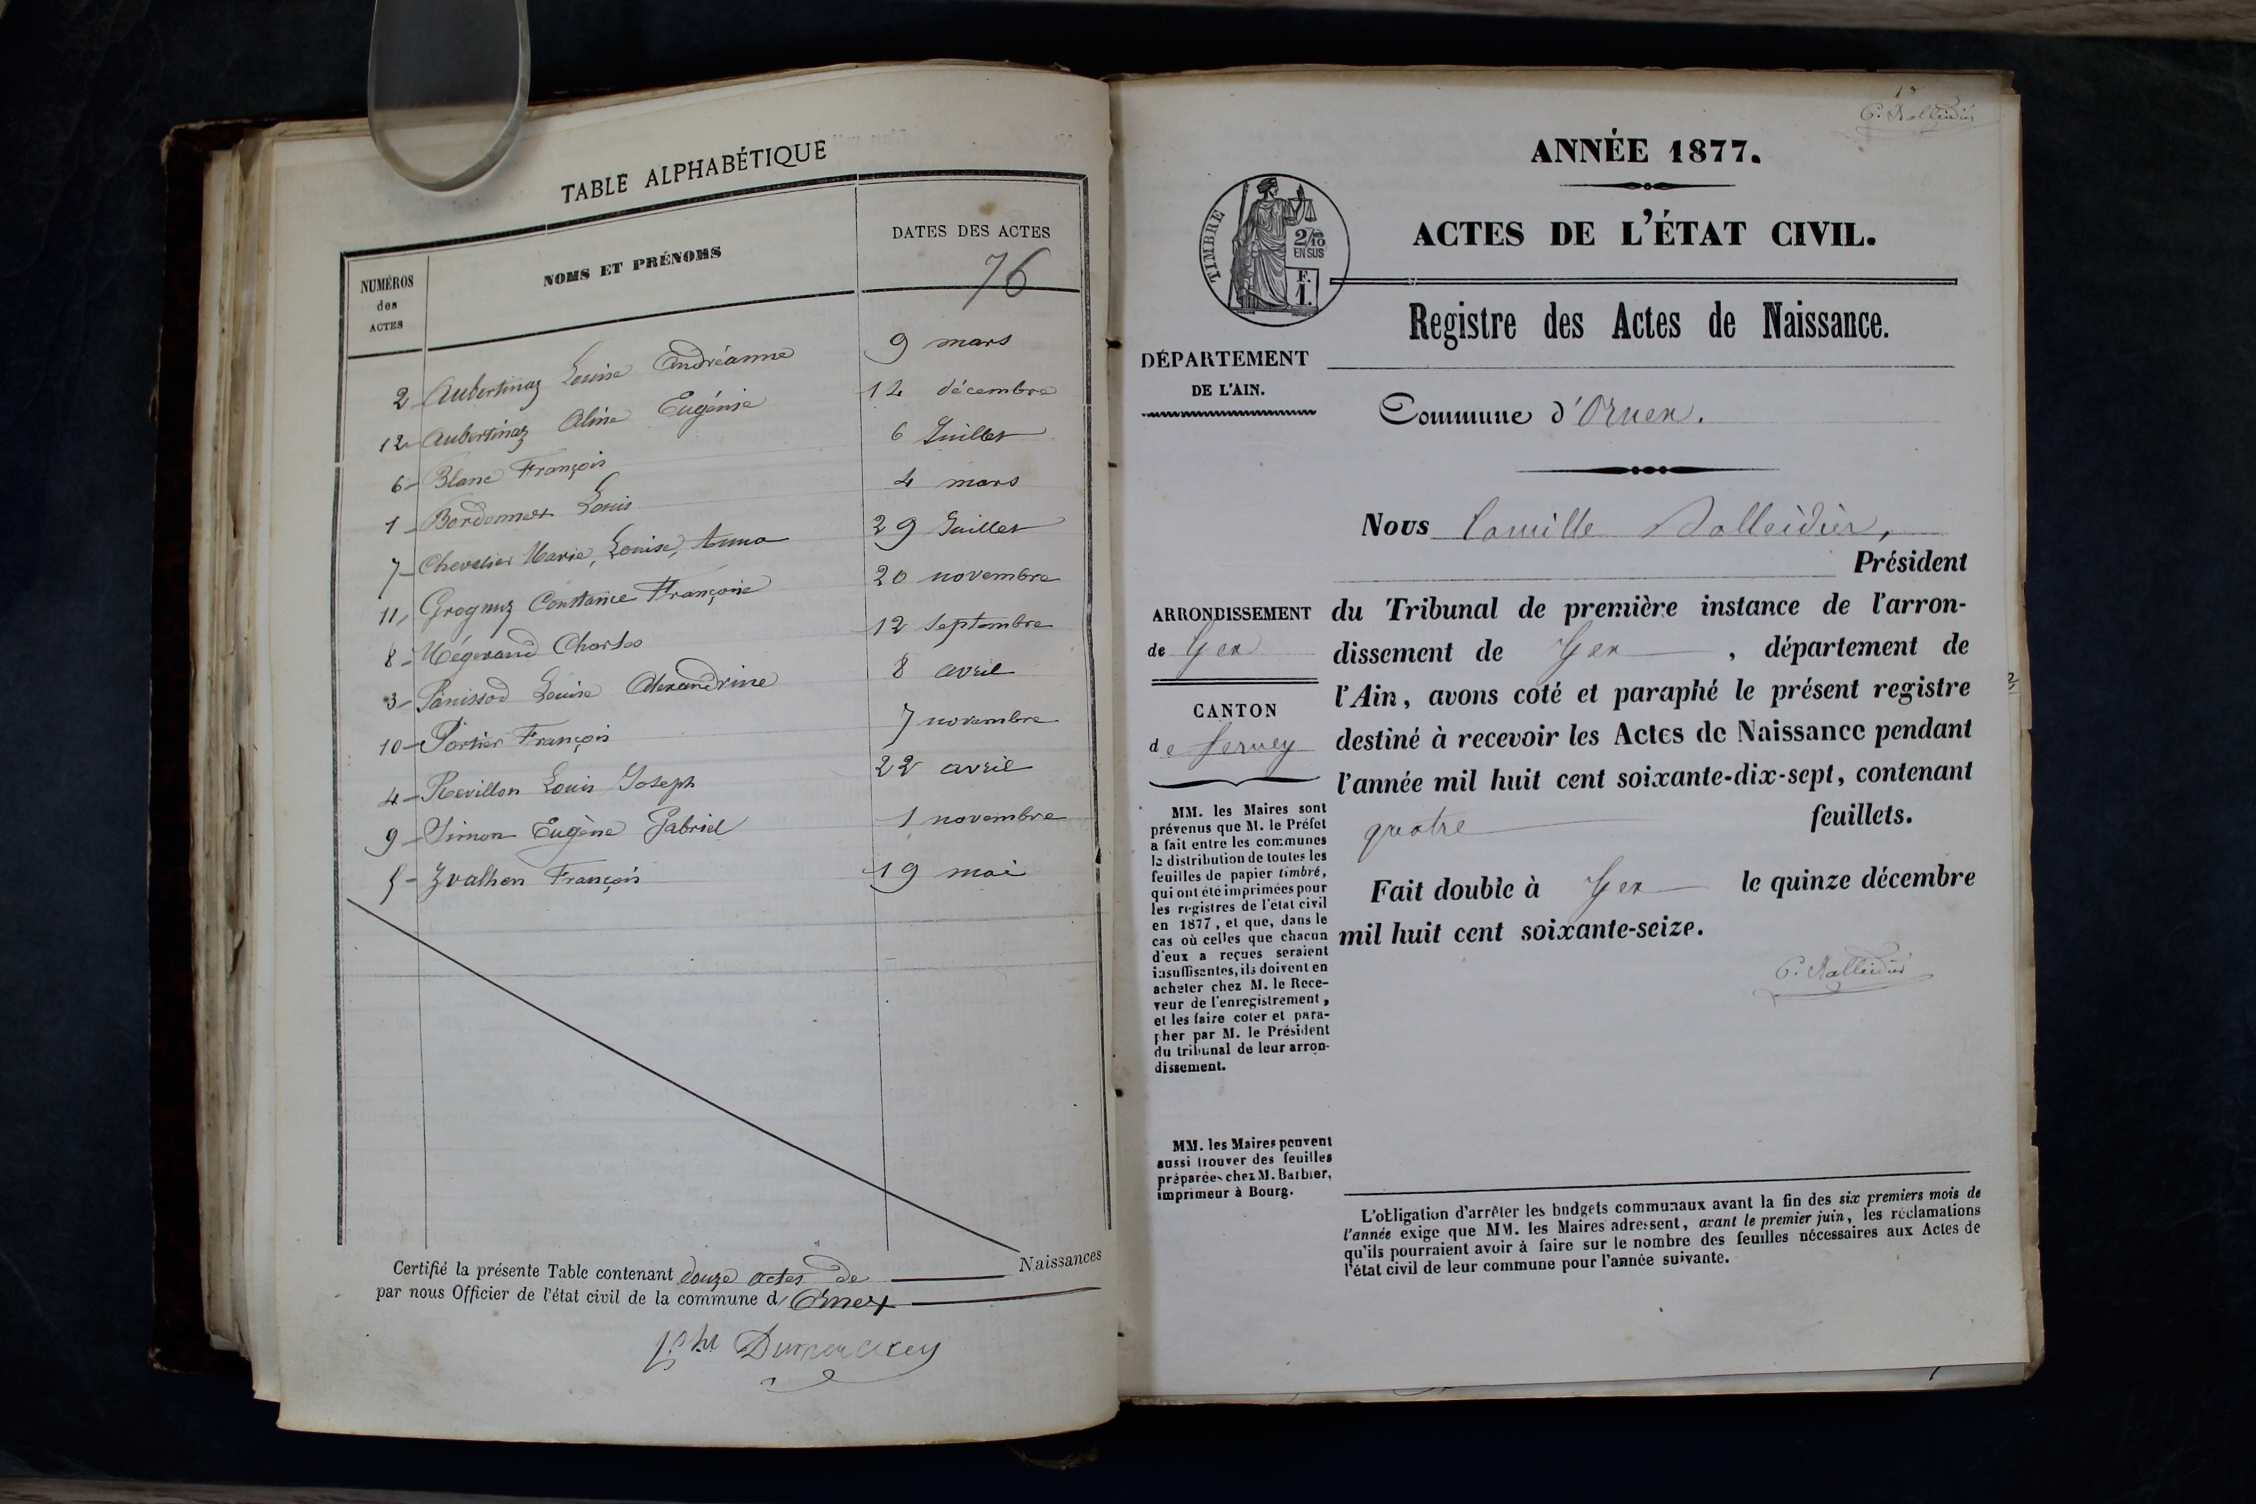 TABLE ALPHABÉTIQUE
NUMÉROS
des
ACTES
NOMS ET PRÉNOMS
DATES DES ACTES
76
2 - Aubertinaz Louise Andréanne 9 mars
12 - Aubertinaz Aline Eugénie 14 décembre
6 - Blanc François 6 Juillet
1 - Bordonnet Louis 4 mars
7 - Chevalier Marie, Louise, Anna 29 Juillet
11, Grognuz Constance Françoise 20 novembre
8 - Mégevand Charles 12 Septembre
3 - Panissod Louise Alexandrine 8 avril
10 - Portier François 7 novembre
4 - Revillon Louis Joseph 22 avril
9 - Simon Eugène Gabriel 1 novembre
5 - Zvalhen François 19 mai
Certifié la présente Table contenant douze actes de Naissances
par nous Officier de l'état civil de la commune d'Ornex
ANNÉE 1877.
ACTES DE L'ÉTAT CIVIL.
TIMBRE
2/10
EN SUS
F.
1.
Registre des Actes de Naissance.
DÉPARTEMENT
DE L'AIN.
Commune d'Ornex.
Nous Camille
Président
ARRONDISSEMENT
de Gex
CANTON
de Ferney
du Tribunal de première instance de l'arron-
dissement de Gex, département de
l'Ain, avons coté et paraphé le présent registre
destiné à recevoir les Actes de Naissance pendant
l'année mil huit cent soixante-dix-sept, contenant
quatre feuillets.
Fait double à Gex le quinze décembre
mil huit cent soixante-seize.
MM. les Maires sont
prévenus que M. le Préfet
a fait entre les communes
la distribution de toutes les
feuilles de papier timbré,
qui ont été imprimées pour
les registres de l'état civil
en 1877, et que, dans le
cas où celles que chacun
d'eux a reçues seraient
insuffisantes, ils doivent en
acheter chez M. le Rece-
veur de l'enregistrement,
et les faire coter et para-
pher par M. le Président
du tribunal de leur arron-
dissement.
MM. les Maires peuvent
aussi trouver des feuilles
préparées chez M. Barbier,
imprimeur à Bourg.
L'obligation d'arrêter les budgets communaux avant la fin des six premiers mois de
l'année exige que MM. les Maires adressent, avant le premier juin, les réclamations
qu'ils pourraient avoir à faire sur le nombre des feuilles nécessaires aux Actes de
l'état civil de leur commune pour l'année suivante.